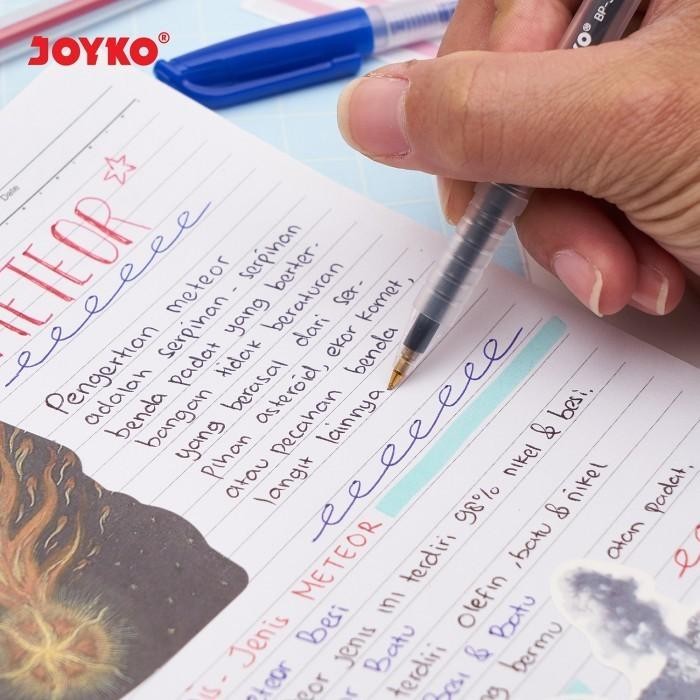 JOYKO®
KO® BP-
Date
METEOR
Pengertian meteor
adalah serpihan - serpihan
benda padat yang berter-
bangan tidak beraturan
yang berasal dari ser-
pihan asteroid, ekor komet,
atau pecahan benda
langit lainnya
is - Jenis METEOR
eteor Besi
eor jenis ini terdiri 98% nikel & besi.
Batu
terdiri Olefin, batu & nikel
Besi & Batu
ng bermu atan padat.